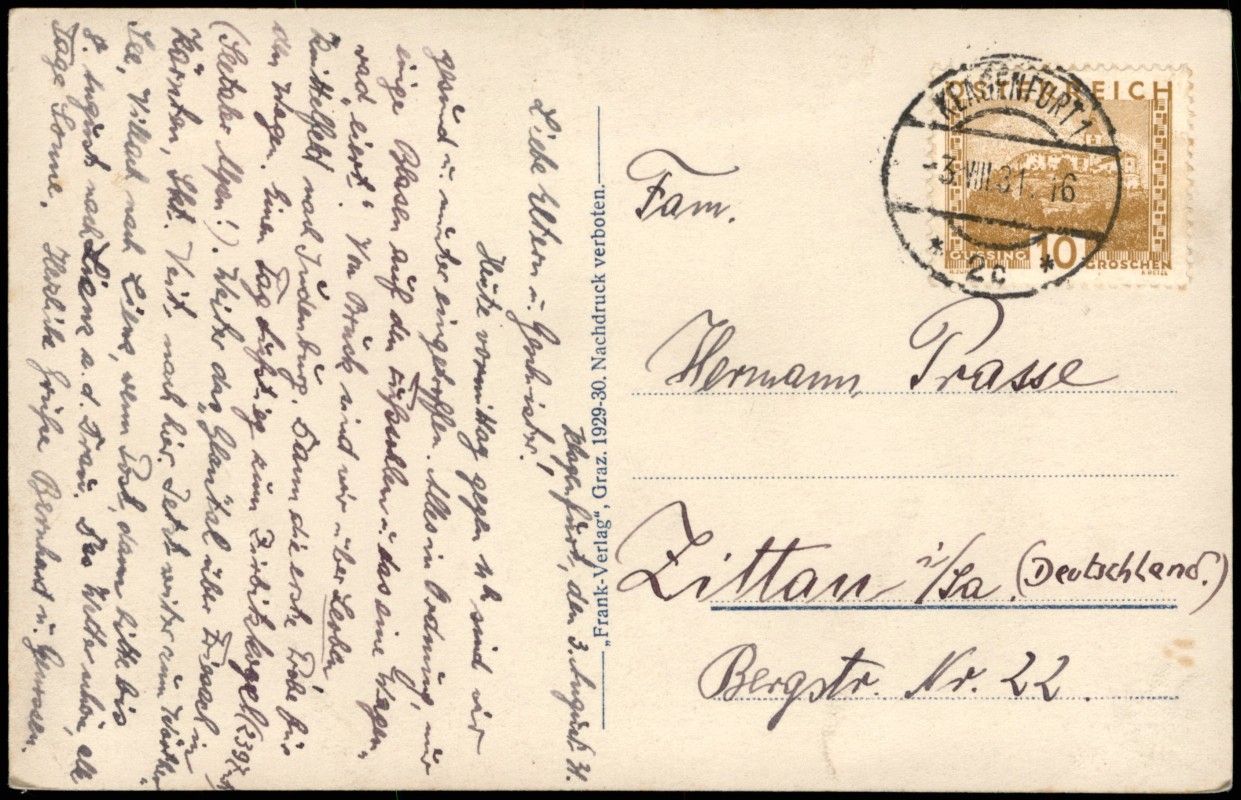 Klagenfurt, den 3. August 31.
Liebe Eltern u. Geschwister!
Heute vormittag gegen 11h sind wir
gesund u. munter eingetroffen. Alles in Ordnung, nur
einige Blasen auf den Fußsohlen u. das eine Wagen-
rad „eiert“. Von Bruck sind wir über Leoben
Knittelfeld nach Judenburg. Dann die erste Probe für
den Wagen. Einen Tag tüchtig zum Zirbitzkogel 2397 m
(Seetaler Alpen!). Weiter das Glantal über Friesach in
Kärnten, Skt. Veit, nach hier. Jetzt weiter zum Wörther
See, Villach nach Lienz, wenn Post, dann bitte bis
8. August nach Lienz a. d. Drau. Das Wetter schön, alle
Tage Sonne. Herzliche Grüße Bernhard u. Genossen.
„Frank-Verlag“, Graz. 1929-30. Nachdruck verboten.
ÖSTERREICH
KLAGENFURT 1
-3.VIII.31. 16
* 2c *
GÜSSING
10 GROSCHEN
Fam.
Hermann Prasse
Zittau i/Sa. (Deutschland.)
Bergstr. Nr. 22.